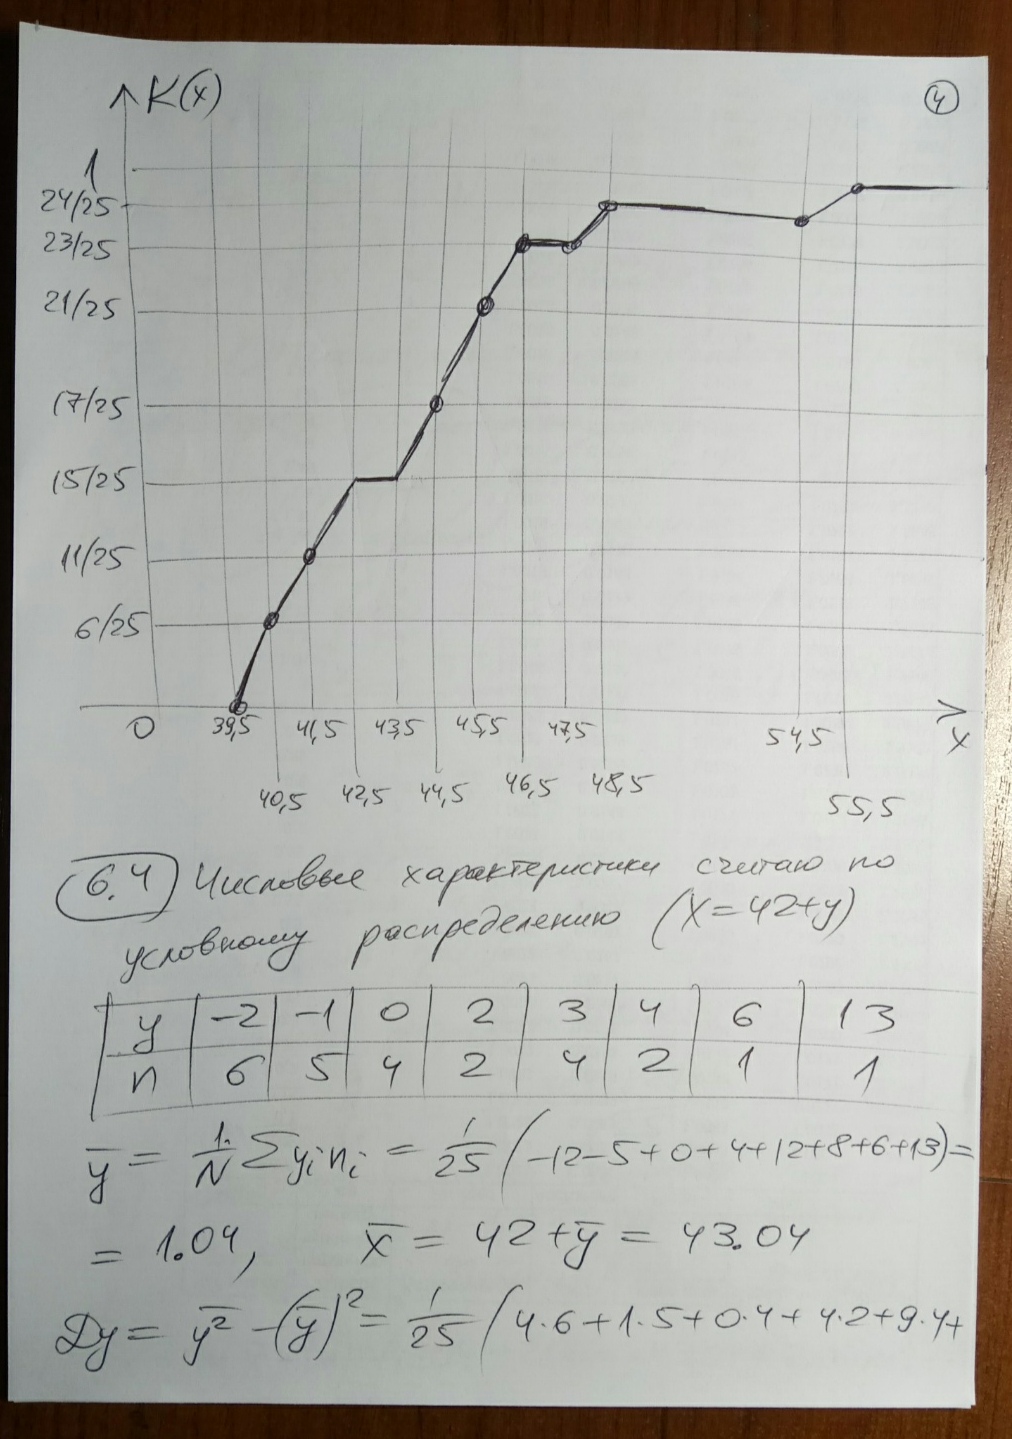 K(x)
4
1
24/25
23/25
21/25
17/25
15/25
11/25
6/25
0 39,5 41,5 43,5 45,5 47,5 54,5 x
40,5 42,5 44,5 46,5 48,5 55,5
6.4 Числовые характеристики считаю по
условному распределению (x=42+y)
y -2 -1 0 2 3 4 6 13
n 6 5 4 2 4 2 1 1
y̅ = 1/N Σyᵢnᵢ = 1/25 (-12-5+0+4+12+8+6+13)=
= 1.04, x̅ = 42+y̅ = 43.04
Dy = y̅²̅ -(y̅)² = 1/25 (4·6+1·5+0·4+4·2+9·4+